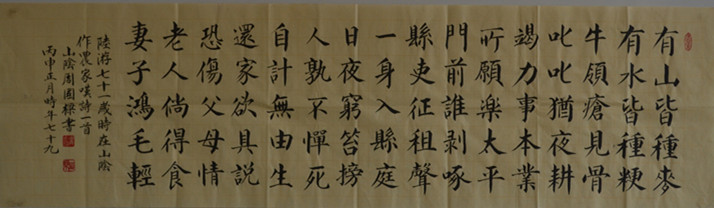 有山皆種麥
有水皆種粳
牛領瘡見骨
叱叱猶夜耕
竭力事本業
所願楽太平
門前誰剥啄
縣吏征租聲
一身入縣庭
日夜窮笞搒
人孰不憚死
自計無由生
還家欲具説
恐傷父母情
老人倘得食
妻子鴻毛輕
陸游七十一歲時在山陰
作農家嘆詩一首
山陰周國樑書
丙申正月時年七十九